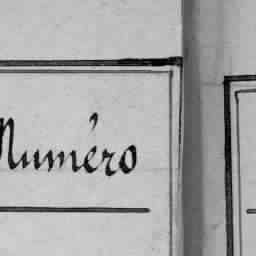 Numéro